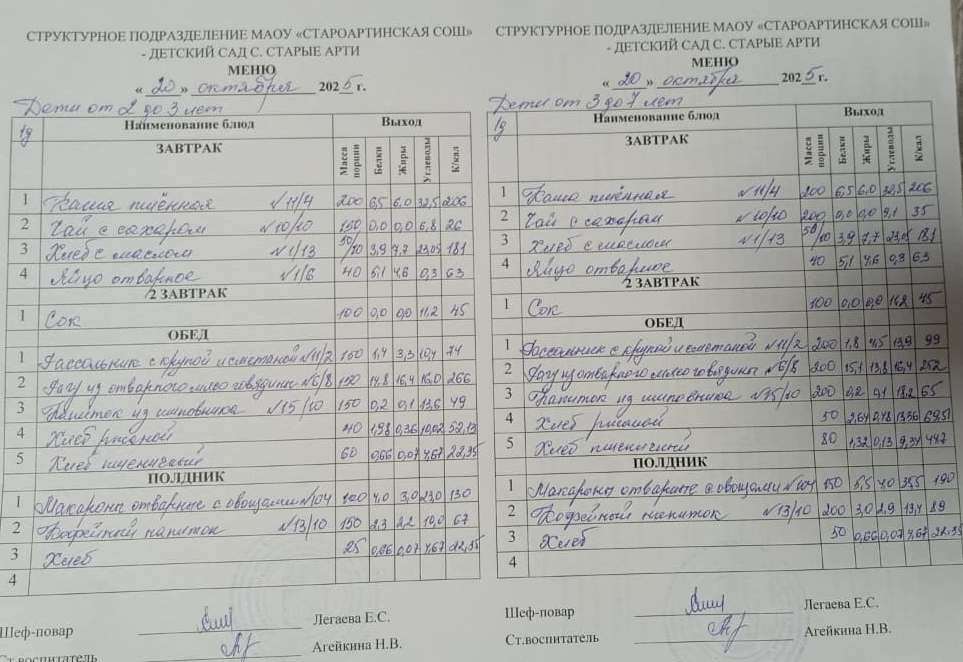 СТРУКТУРНОЕ ПОДРАЗДЕЛЕНИЕ МАОУ «СТАРОАРТИНСКАЯ СОШ»
- ДЕТСКИЙ САД С. СТАРЫЕ АРТИ
МЕНЮ
« 20 » октября 2025 г.
Дети от 2 до 3 лет
1д Наименование блюд Выход
ЗАВТРАК Масса порции Белки Жиры Углеводы К/кал
1 Каша пшённая №11/4 200 6,5 6,0 32,5 206
2 Чай с сахаром №10/10 150 0,0 0,0 6,8 26
3 Хлеб с маслом №1/13 50/10 3,9 7,7 23,05 181
4 Яйцо отварное №1/6 40 5,1 4,6 0,3 63
2 ЗАВТРАК
1 Сок 100 0,0 0,0 11,2 45
ОБЕД
1 Рассольник с крупой и сметаной №11/2 150 1,4 3,3 10,4 74
2 Рагу из отварного мяса говядины №6/8 150 14,8 16,4 16,0 266
3 Напиток из шиповника №15/10 150 0,2 0,1 13,6 49
4 Хлеб ржаной 40 1,98 0,36 10,02 52,13
5 Хлеб пшеничный 60 0,66 0,07 4,67 22,35
ПОЛДНИК
1 Макароны отварные с овощами №10/4 100 4,0 3,0 23,0 130
2 Кофейный напиток №13/10 150 2,3 2,2 10,0 67
3 Хлеб 25 0,66 0,07 4,67 22,35
4
Шеф-повар Легаева Е.С.
Ст.воспитатель Агейкина Н.В.
СТРУКТУРНОЕ ПОДРАЗДЕЛЕНИЕ МАОУ «СТАРОАРТИНСКАЯ СОШ»
- ДЕТСКИЙ САД С. СТАРЫЕ АРТИ
МЕНЮ
« 20 » октября 2025 г.
Дети от 3 до 7 лет
1д Наименование блюд Выход
ЗАВТРАК Масса порции Белки Жиры Углеводы К/кал
1 Каша пшённая №11/4 200 6,5 6,0 32,5 206
2 Чай с сахаром №10/10 200 0,0 0,0 9,1 35
3 Хлеб с маслом №1/13 50/10 3,9 7,7 23,05 181
4 Яйцо отварное 40 5,1 4,6 0,3 63
2 ЗАВТРАК
1 Сок 100 0,0 0,0 11,2 45
ОБЕД
1 Рассольник с крупой и сметаной №11/2 200 1,8 4,5 13,9 99
2 Рагу из отварного мяса говядины №6/8 200 15,1 13,8 16,4 252
3 Напиток из шиповника №15/10 200 0,2 0,1 18,2 65
4 Хлеб ржаной 50 2,64 0,48 13,36 69,51
5 Хлеб пшеничный 80 1,32 0,13 9,34 44,7
ПОЛДНИК
1 Макароны отварные с овощами №10/4 150 5,5 4,0 35,5 190
2 Кофейный напиток №13/10 200 3,0 2,9 13,4 89
3 Хлеб 50 0,66 0,07 4,67 22,35
4
Шеф-повар Легаева Е.С.
Ст.воспитатель Агейкина Н.В.